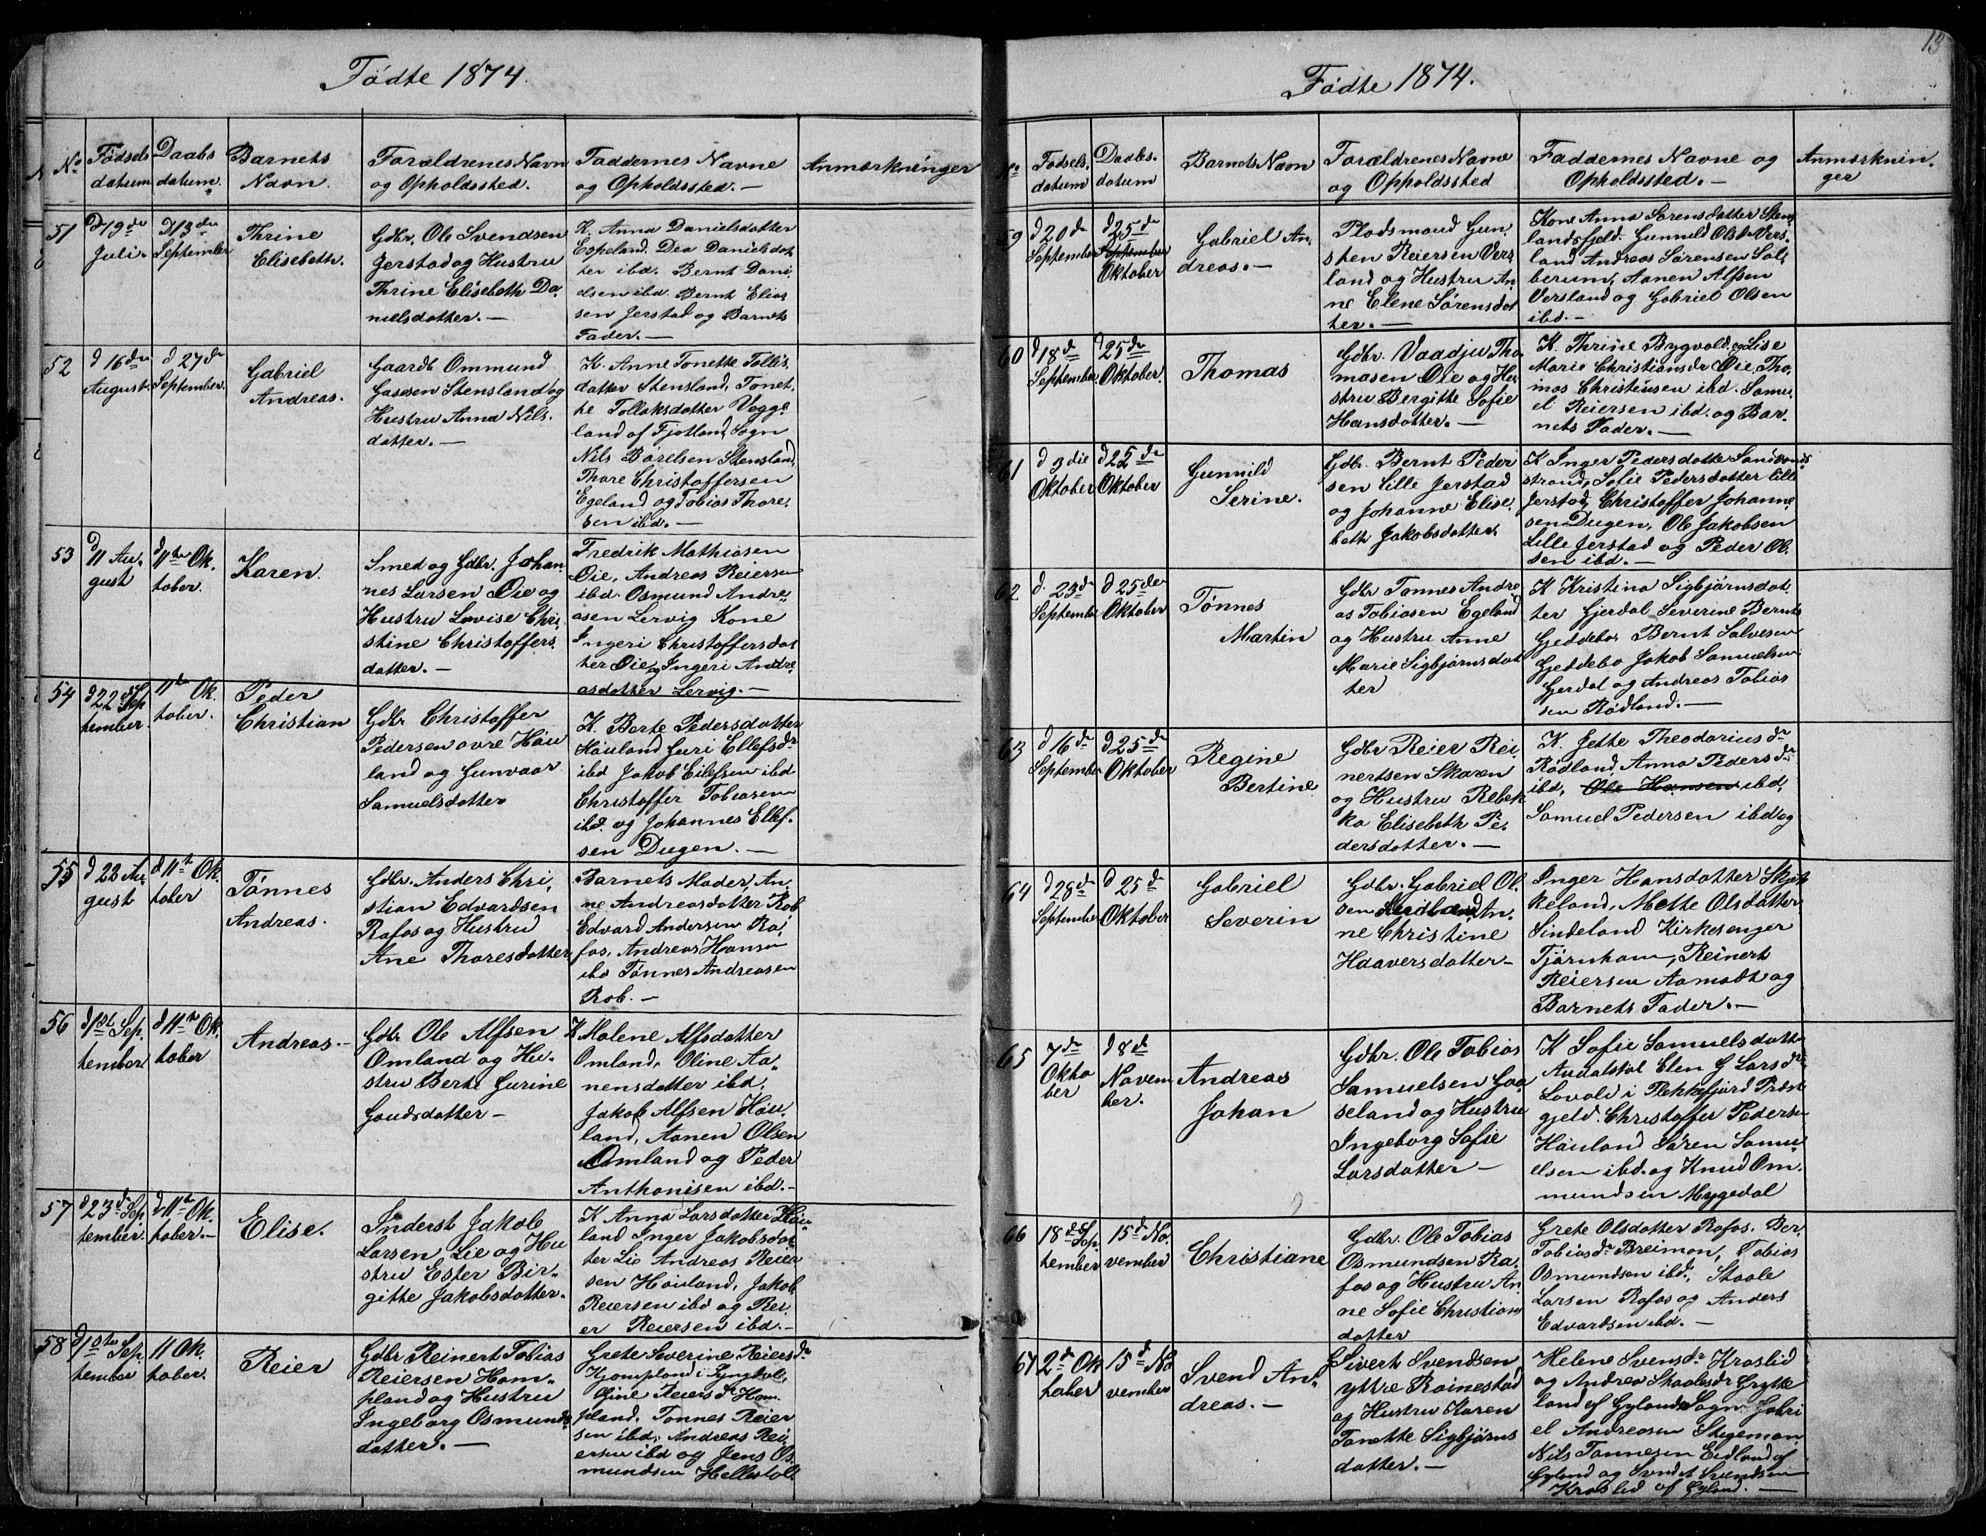 Fødte 1874.
No
Fødsels
datum
Daabs
datum.
Barnets
Navn.
Forældrenes Navn
og Opholdssted.
Faddernes Navne
og Opholdssted. —
Anmærkninger
51
d 19de
Juli.
d 13de
September
Thrine
Elisebeth.
Gdbr. Ole Svendsen
Jerstad og Hustru
Thrine Elisebeth Da-
nielsdatter. —
K. Anna Danielsdatter
Espeland. Dea Danielsdat
ter ibd. Bernt Dani
elsen ibd. Bernt Elias
sen Jerstad og Barnets
Fader. —
52
d 16de
August.
d 27de
September.
Gabriel
Andreas.
Gaardb Ommund
Gasesen Stensland og
Hustru Anna Nils-
datter. —
K. Anne Tonette Tollis
datter Stensland, Tonet-
te Tollaksdatter Vegge
land af Fjotland, Sogn
Nils Borelsen Stensland,
Thore Christoffersen
Egeland og Tobias Thore-
sen ibd. —
53
d
11 Au-
gust
d
11te Ok-
tober.
Karen.
Smed og Gdbr. Johan-
nes Larsen Øie og
Hustru Lovise Chri-
stine Christoffers-
datter. —
Fredrik Mathiasen
Øie, Andreas Reiersen
ibd. Osmund Andre-
asen Lervig Kone
Ingeri Christoffersdat
ter Øie og Ingeri Andre
asdatter Lervig. —
54
d 22 Sep
tember.
11te Ok-
tober.
Peder
Christian
Gdbr. Christoffer
Pedersen øvre Høu
land og Gunvaar
Samuelsdatter
K. Berte Pedersdatter
Høuland Guri Ellefsdr
ibd Jakob Eilefsen ibd
Christoffer Tobiasen
ibd. og Johannes Ellef-
sen Dugen. —
55
d 22 Au-
gust
d 11te Ok-
tober
Tønnes
Andreas.
Gdbr. Anders Chri-
stian Edvardsen
Rafos og Hustru
Ane Thoresdatter
Barnets Moder, An-
ne Andreasdatter Rob
Edvard Andersen Ra-
fos, Andreas Hansen
ibd Tønnes Andreasen
Rob. —
56
d 1ste Sep-
tember
d 11te Ok-
tober
Andreas. —
Gdbr Ole Alfsen
Omland og Hu-
stru Berte Gurine
Gaudsdatter —
K Malene Alfsdatter
Omland, Oline Aa-
nensdatter ibd.
Jakob Alfsen Høu-
land, Aanen Olsen
Omland og Peder
Anthonisen ibd. —
57
d 23de Sep-
tember.
d 11te Ok-
tober. —
Elise.
Inderst Jakob
Larsen Lie og Hu
stru Ester Bir-
gitte Jakobsdatter.
K Anna Larsdatter Høu
land Inger Jakobsdat
ter Lie Andreas Reier
sen Høuland, Jakob
Reiersen ibd og Rei-
er Reiersen ibd. —
58
d 10de Sep-
tember
11 Ok-
tober.
Reier
Gdbr Reinert Tobias
Reiersen Hom-
pland og Hustru
Ingeborg Osmunds
datter. —
Grete Severine Reiersdr
Hompland i
Reiersd Hom-
pland. Tønnes Reier
sen ibd. Andreas Rei
ersen ibd og Jens Os-
mundsen Hellestøl

13
Fødte 1874.
No
Fødsels
datum
Daabs.
datum
Barnets Navn
Forældrenes Navne
og Opholdssted
Faddernes Navne og
Opholdssted. —
Anmærknin-
ger
59
d 20de
September
d 25de
September
Oktober
Gabriel An
dreas. —
Pladsmand Gun-
sten Reiersen Vers-
land og Hustru An-
ne Elene Sørensdat
ter. —
Kone Anna Sørensdatter Sten
landsfjeld. Gunnild Olsdr Vers-
land Andreas Sørensen Sol-
berum, Aanen Alfsen
Versland og Gabriel Olsen
ibd. —
60
d 18de
September
d 25de
Oktober.
Thomas
Gdbr. Vaadju Tho
masen Øie og Hu
stru Bergitte Sofie
Hansdatter. —
K. Thrine Bygvold og Lise
Marie Christiansdr Øie, Tho-
mas Christensen ibd. Samu-
el Reiersen ibd. og Bar-
nets Fader. —
61
d 3die
Oktober
d 25de
Oktober
Gunnild
Serine.
Gdbr. Bernt Peder
sen Lille Jerstad
og Johanne Elise-
beth Jakobsdatter.
K Inger Pedersdatter Sandvands
strand, Sofie Pedersdatter Lille
Jerstad, Christoffer Johanne-
sen Dugen, Ole Jakobsen
Lille Jerstad og Peder Ol-
sen ibd. —
62
d. 23de
September
d 25de
Oktober
Tønnes
Martin
Gdbr Tønnes Andre
as Tobiasen Egeland
og Hustru Anne
Marie Sigbjørnsdat
ter
K Kristina Sigbjørnsdat-
ter Gjerdal, Severine Bernts
Gjeddebo. Bernt Salvesen
Gjeddebo Jakob Samuelsen
Gerdal og Andreas Tobias
sen Rødland. —
63
d 16de
September
d 25de
Oktober
Regine
Bertine
Gdbr Reier Rei-
nertsen Skaren
og Hustru Rebek
ka Elisebeth Pe-
dersdatter. —
K. Jette Theodoriusdr
Rødland, Anna Pedersdr
ibd, Ole Hansen ibd,
Samuel Pedersen ibd og
64
d 28de
September
d 25de
Oktober
Gabriel
Severin
Gdbr. Gabriel Ol-
sen An-
ne Christine
Haaversdatter —
Inger Hansdatter Skjek
keland, Mette Olsdatter
Sindeland Kirkesanger
Tjørnhom, Reinert
Reiersen Aamodt og
Barnets Fader. —
65
7de
Okto
ber
d 8de
Novem
ber.
Andreas
Johan
Gdbr. Ole Tobias
Samuelsen Gaa
seland og Hustru
Ingeborg Sofie
Larsdatter —
K Sofie Samuelsdatt
Audalstøl Elen G Larsdr
Lovold i Flekkefjord Præst
gjeld. Christoffer Pedersen
Høuland Søren Samu-
elsen ibd. og Knud Om-
mundsen Mygedal
66
18de Sep-
tember
15de No-
vember
Christiane
Gdbr. Ole Tobias
Osmundsen Ra-
fos og Hustru An
ne Sofie Christians
datter
Grete Olsdatter Rafos. Ber
Tobiasdr Breimon, Tobias
Osmundsen ibd., Staale
Larsen Rafos og Anders
Edvardsen ibd. —
67
2de Ok
tober
15de No
vember
Svend An-
dreas. —
Sivert Svendsen
yttre Rainestad
og Hustru Karen
Tonette Sigbjørns
datter. —
Helene Svensdr Kroslid
og Andrea Staalesdr Grytte
land af Gylands Sogn, Gabri
el Andreasen Stegemon,
Nils Tønnesen Eidland af
Gyland og Svendsen
Kroslid af Gyland. —